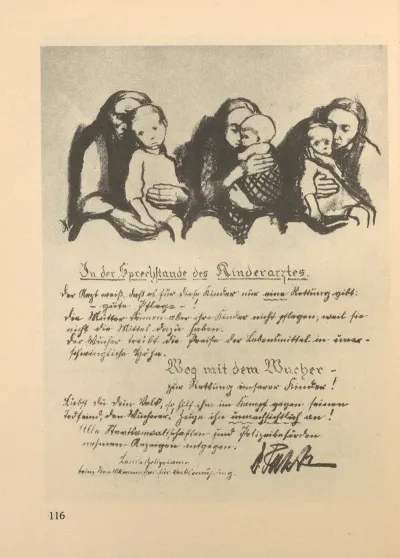 In der Sprechstunde des Kinderarztes.
Der Arzt weiß, daß es für diese Kinder nur eine Rettung gibt:
– gute Pflege –!
Die Mütter können aber ihre Kinder nicht pflegen, weil sie
nicht die Mittel dazu haben.
Der Wucher treibt die Preise der Lebensmittel in uner-
schwingliche Höhe.
Weg mit dem Wucher –
zur Rettung unserer Kinder!
Liebst du dein Volk, so hilf ihm im Kampf gegen seinen
Todfeind, den Wucherer. Zeige ihn unnachsichtlich an!
Alle Staatsanwaltschaften und Polizeibehörden
nehmen Anzeigen entgegen.
Landespolizeiamt
beim
116